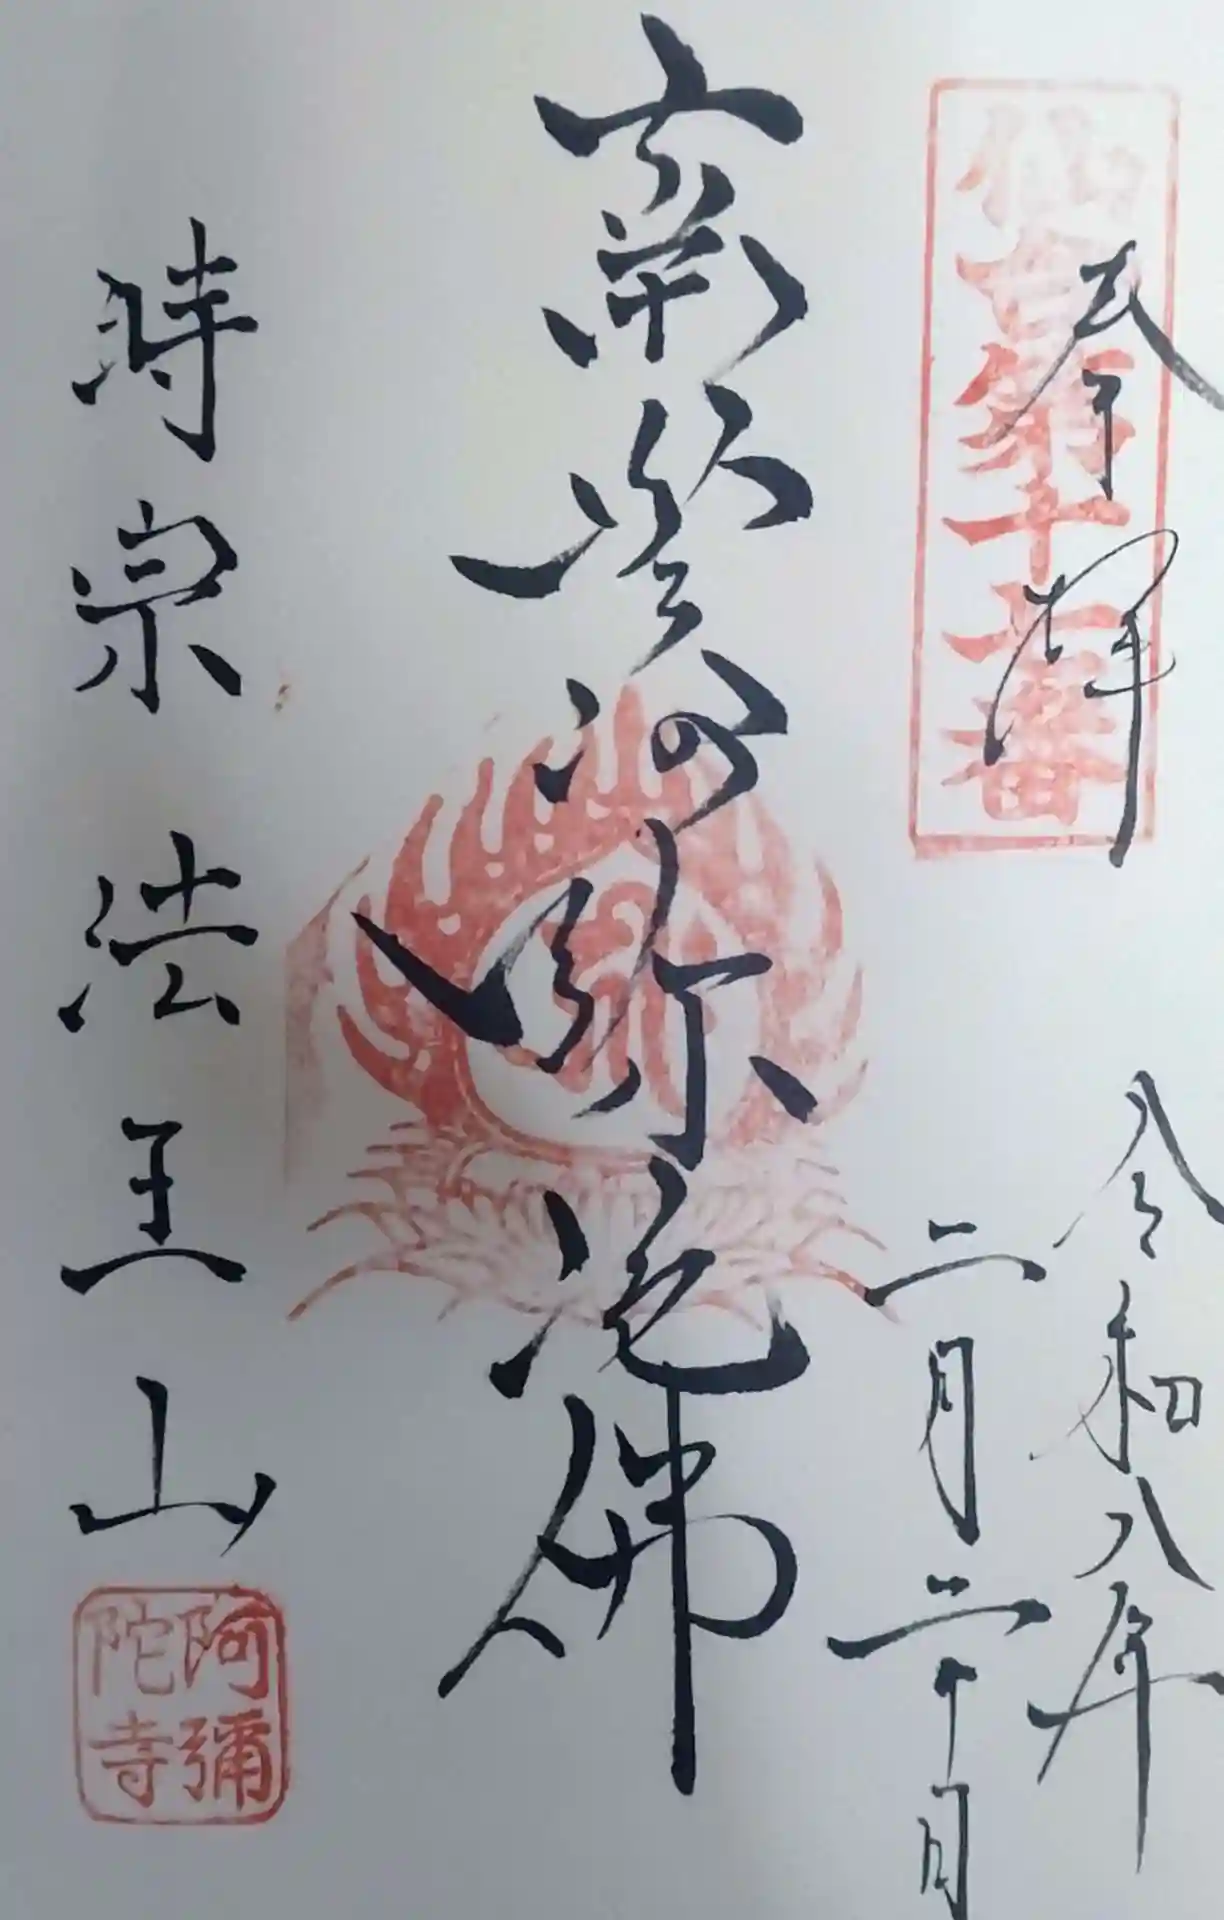 奉拝
仙臺第十七番
令和八年
二月二十日
南無阿弥陀佛
時宗 法王山
阿彌
陀寺